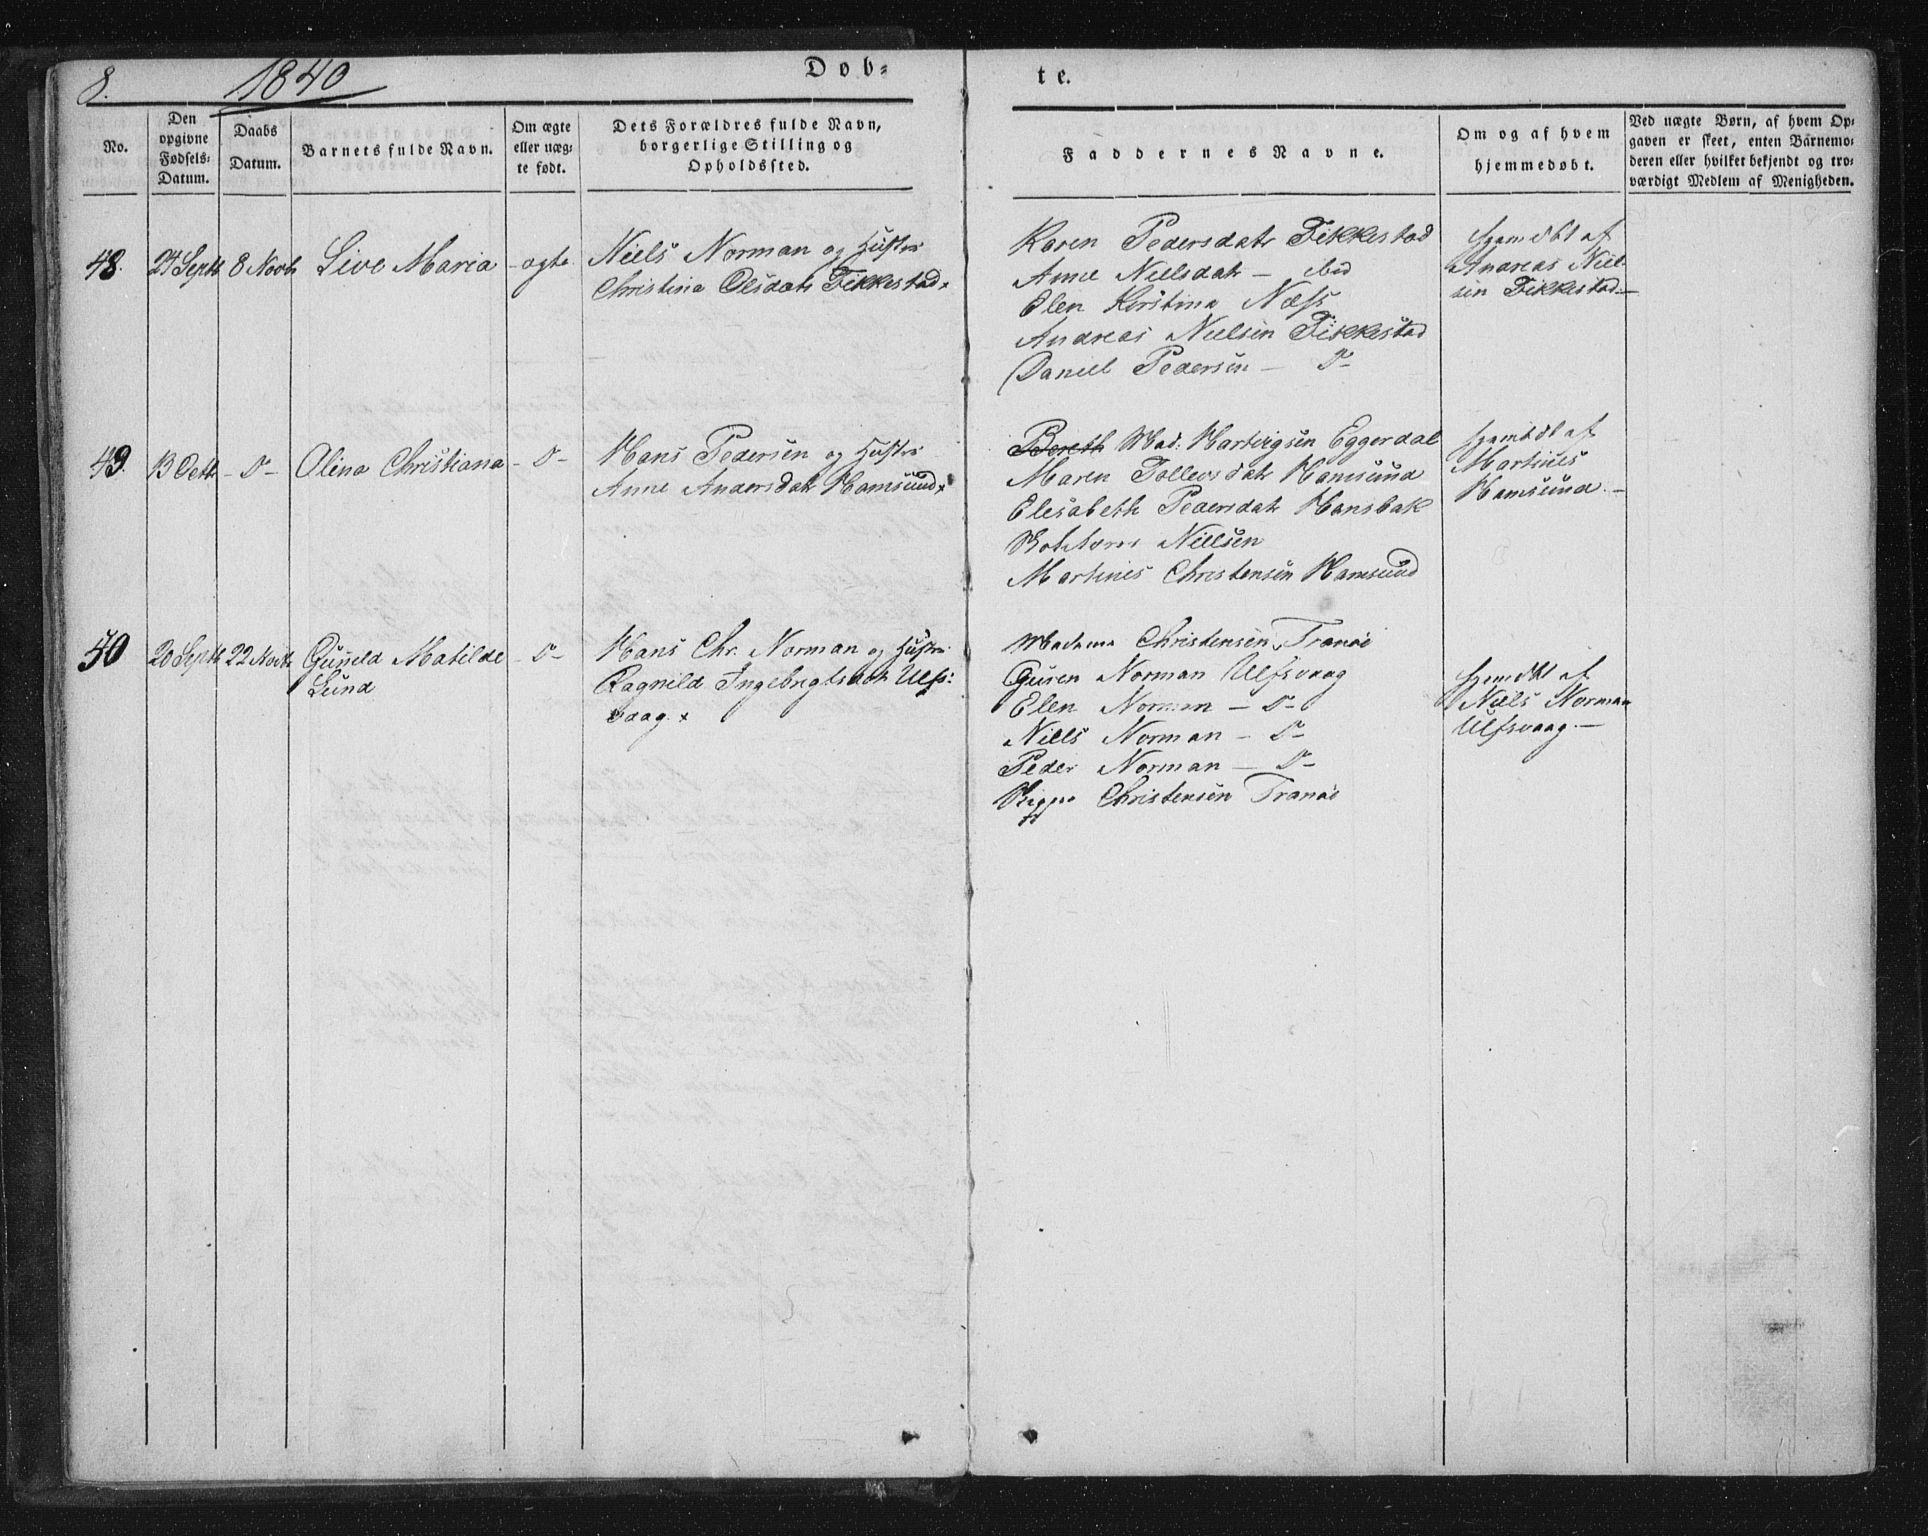 8.
1840
Døb-
te.
No.
Den opgivne Fødsels-Datum.
Daabs Datum.
Barnets fulde Navn.
Om ægte eller uæg-te født.
Dets Forældres fulde Navn, borgerlige Stilling og Opholdssted.
Faddernes Navne.
Om og af hvem hjemmedøbt.
Ved uægte Børn, af hvem Op-
gaven er skeet, enten Barnemo-
deren eller hvilket bekjendt og tro-
værdigt Medlem af Menigheden.
48. 24 Septb 8 Novb Live Maria - ægte Niels Norman og Hustru
Christina Olsdatr Fikkestad
Karen Pedersdatr Fikkestad
Anne Nielsdatr - ibid
Elen Kirstina Næss
Andreas Nielsen Fikkestad
Daniel Pedersen - D-
hjemdbt af
Andreas Niel-
sen Fikkestad.-
49. 13 Octb - D- Olina Christiana - D- Hans Pedersen og Hustru
Anne Andersdatr Hamsund
Bereth Mad: Hartvigsen Eggerdal
Maren Tollevsdatr Hamsund
Elesabeth Pedersdatr Hansbak
Nielsen
Martines Christensen Hamsund
hjemdbt af
Martines
Hamsund.-
50 20 Septb 22 Novb Guneld Matilde - D- Hans Chr. Norman og Hustru
Lund
Ragnild Ingebrigtsdatr Ulfs-
vaag.
Madame Christensen, Tranøe
Guren Norman Ulfsvaag
Elen Norman - D-
Niels Norman - D-
Peder Norman - D-
Christensen Tranøe
hjemdbt af
Niels Norman
Ulfsvaag.-